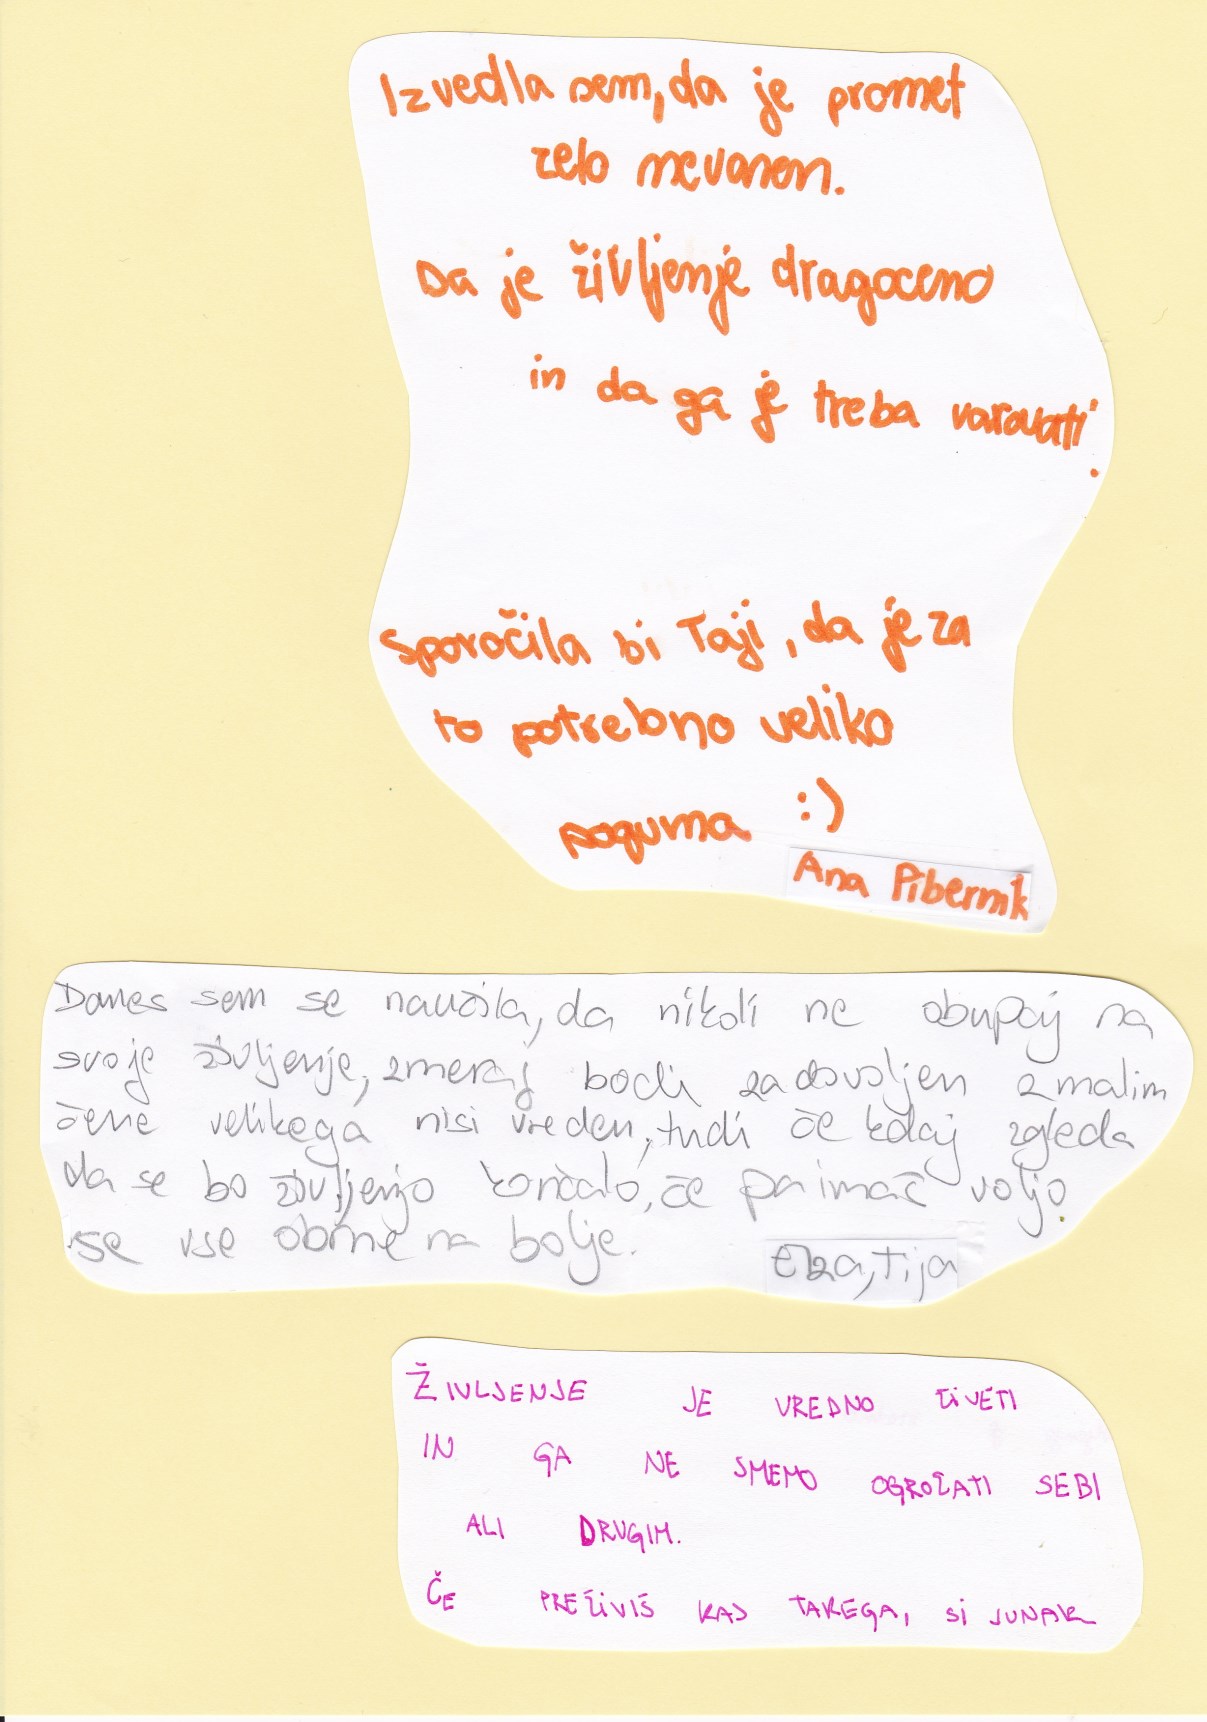 Izvedla sem, da je promet
zelo nevaren.
Da je življenje dragoceno
in da ga je treba varovati.
Sporočila bi Taji, da je za
to potrebno veliko
poguma :)
Ana Pibernik
Danes sem se naučila, da nikoli ne obupaj na
svoje življenje, zmeraj bodi zadovoljen z malim
čene velikega nisi vreden, tudi če kdaj zgleda
da se bo življenjo končalo, če pa imaš voljo
se vse obrne na bolje.
eliza, tija
ŽIVLJENJE JE VREDNO ŽIVETI
IN GA NE SMEMO OGROŽATI SEBI
ALI DRUGIM.
ČE PREŽIVIŠ KAJ TAKEGA, SI JUNAK